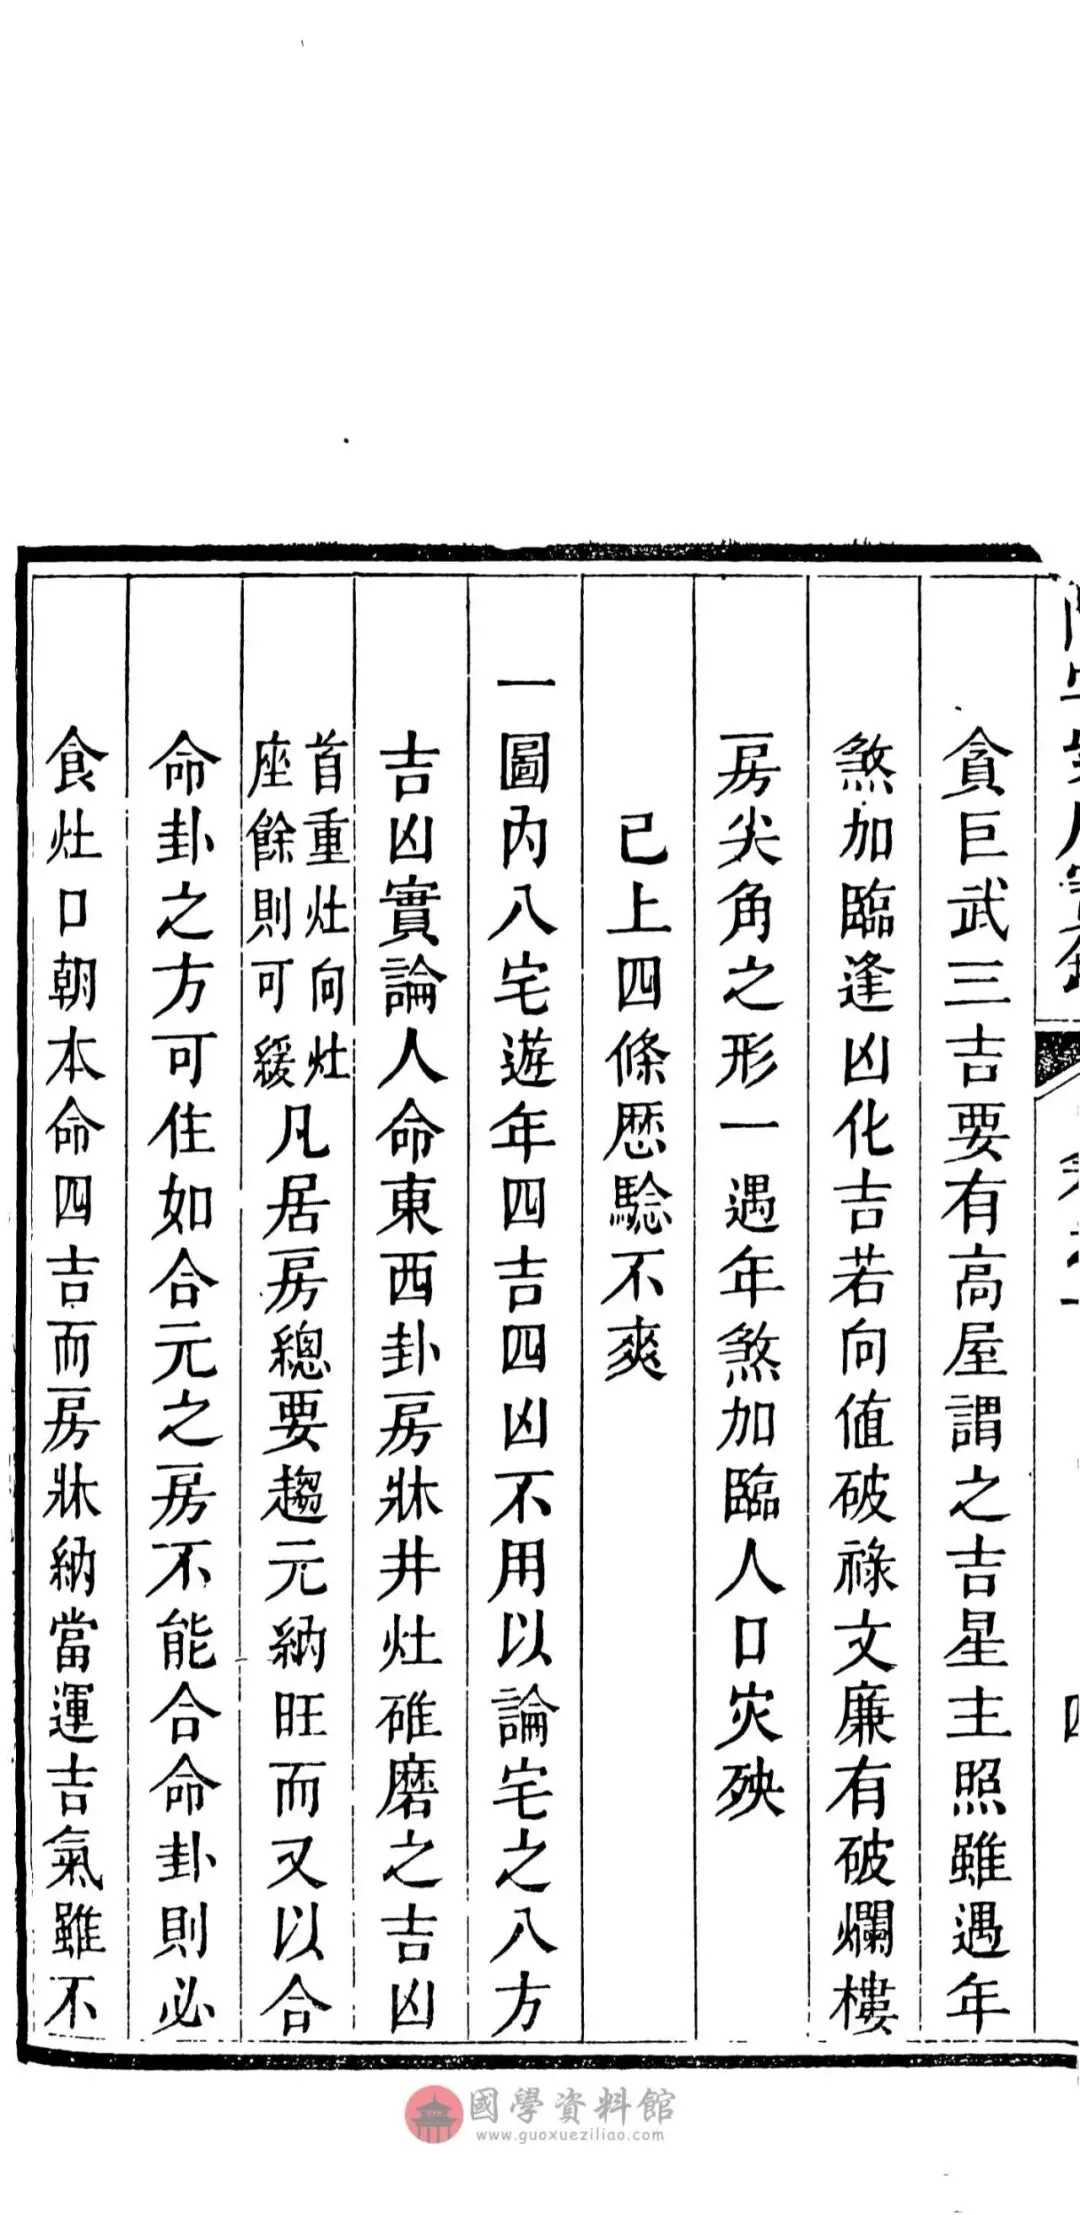 貪巨武三吉要有高屋謂之吉星主照雖遇年
煞加臨逢凶化吉若向值破祿文廉有破爛樓
房尖角之形一遇年煞加臨人口灾殃
已上四條歷驗不爽
一圖內八宅遊年四吉四凶不用以論宅之八方
吉凶實論人命東西卦房牀井灶碓磨之吉凶
首重灶向灶
座餘則可緩
凡居房總要趨元納旺而又以合
命卦之方可住如合元之房不能合命卦則必
食灶口朝本命四吉而房牀納當運吉氣雖不
國學資料館
www.guoxueziliao.com